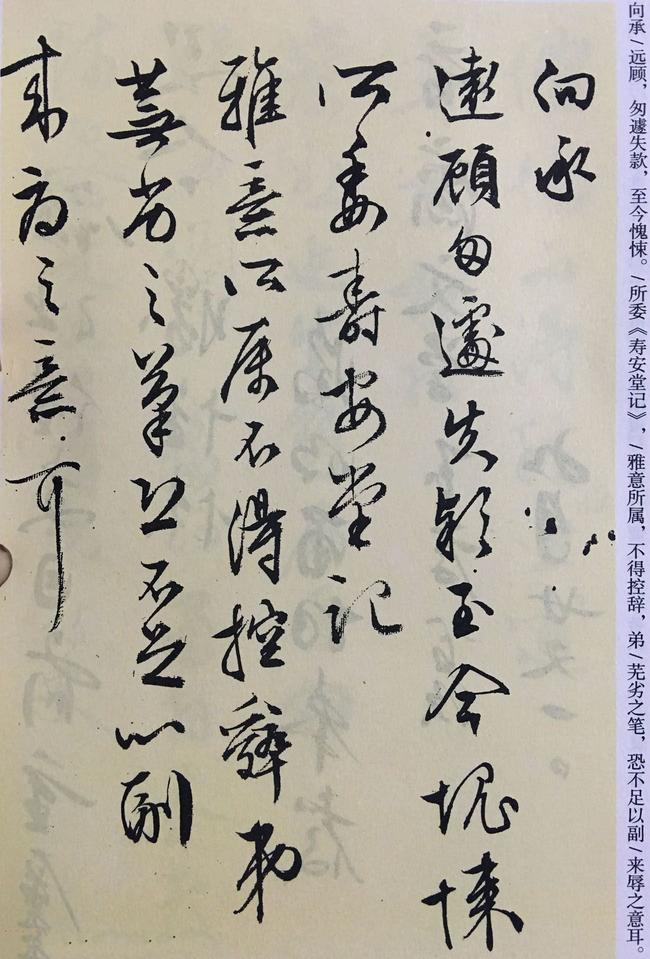 向承
遠顧匆遽失款至今愧悚
所委壽安堂記
雅意所属不得控辭弟
蕪劣之筆恐不足以副
来辱之意耳
向承/远顾，匆遽失款，至今愧悚。/所委《寿安堂记》，/雅意所属，不得控辞，弟/芜劣之笔，恐不足以副/来辱之意耳。